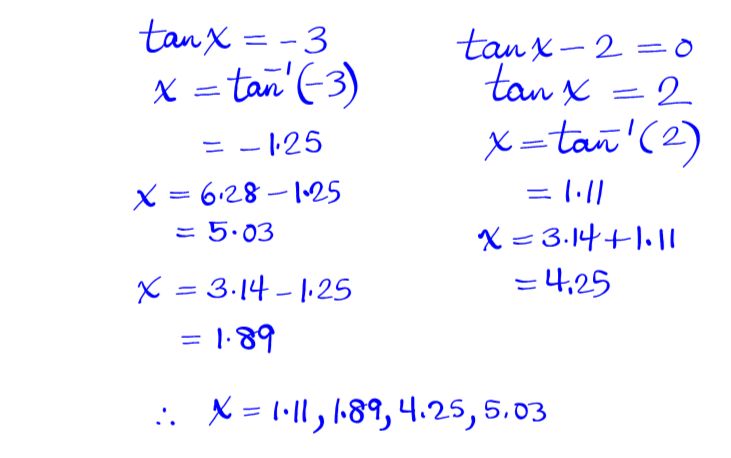 tan x = -3
x = tan⁻¹(-3)
= -1.25
x = 6.28 - 1.25
= 5.03
x = 3.14 - 1.25
= 1.89
tan x - 2 = 0
tan x = 2
x = tan⁻¹(2)
= 1.11
x = 3.14 + 1.11
= 4.25
∴ x = 1.11, 1.89, 4.25, 5.03